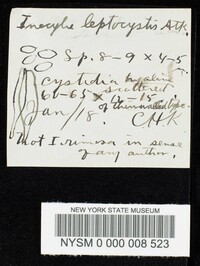 Inocybe leptocystis Atk.
Sp. 8-9 x 4-5
cystidia hyaline
scattered
60-65 x 12-15
of thin walled type.
Jan/18. CHK
not I. rimosa in sense
of any author.
NEW YORK STATE MUSEUM
NYSM 0 000 008 523